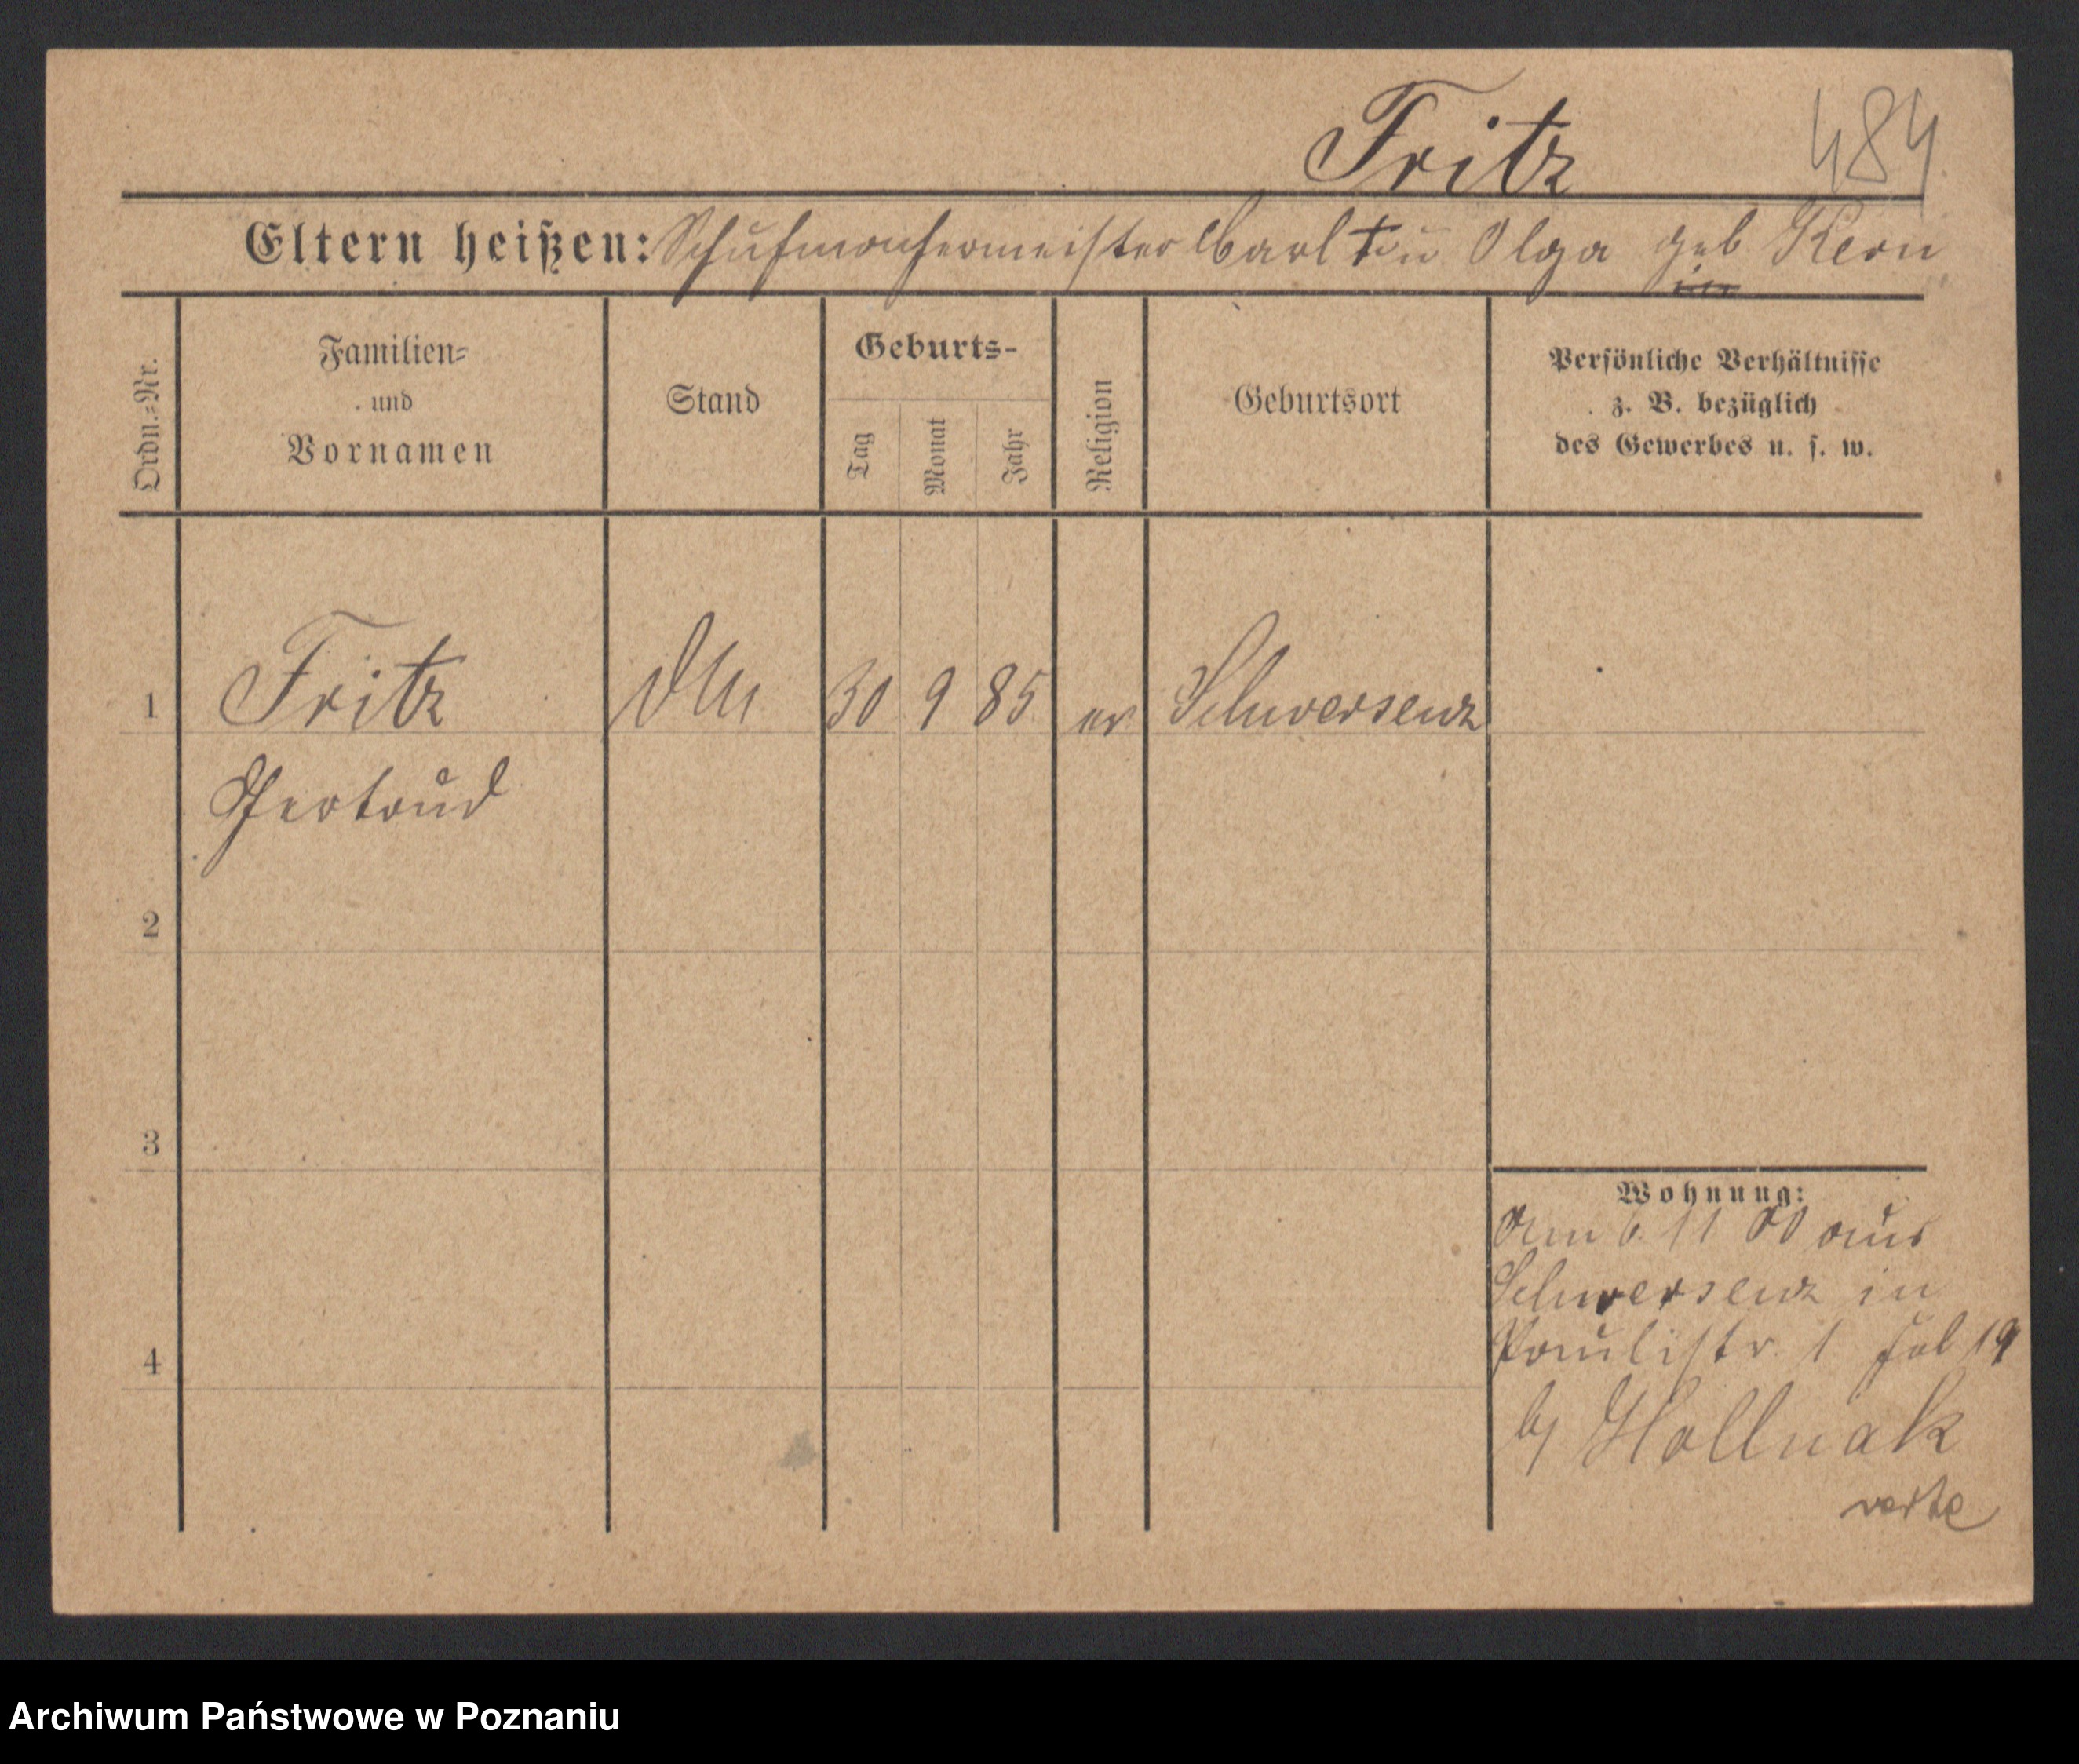 Fritz 484
Eltern heißen: Schuhmachermeister Carl † u Olga geb. Kern
Ordn.=Nr.
Familien=
und
Vornamen
Stand
Geburts-
Tag
Monat
Jahr
Religion
Geburtsort
Persönliche Verhältnisse
z. B. bezüglich
des Gewerbes u. s. w.
1 Fritz 30 9 85 ev. Schwersenz
Gertrud
2
3
4
Wohnung:
Am 6. 11 00 aus
Schwersenz in
Paulistr. 1 19
b/ Hollnak
verte
Archiwum Państwowe w Poznaniu